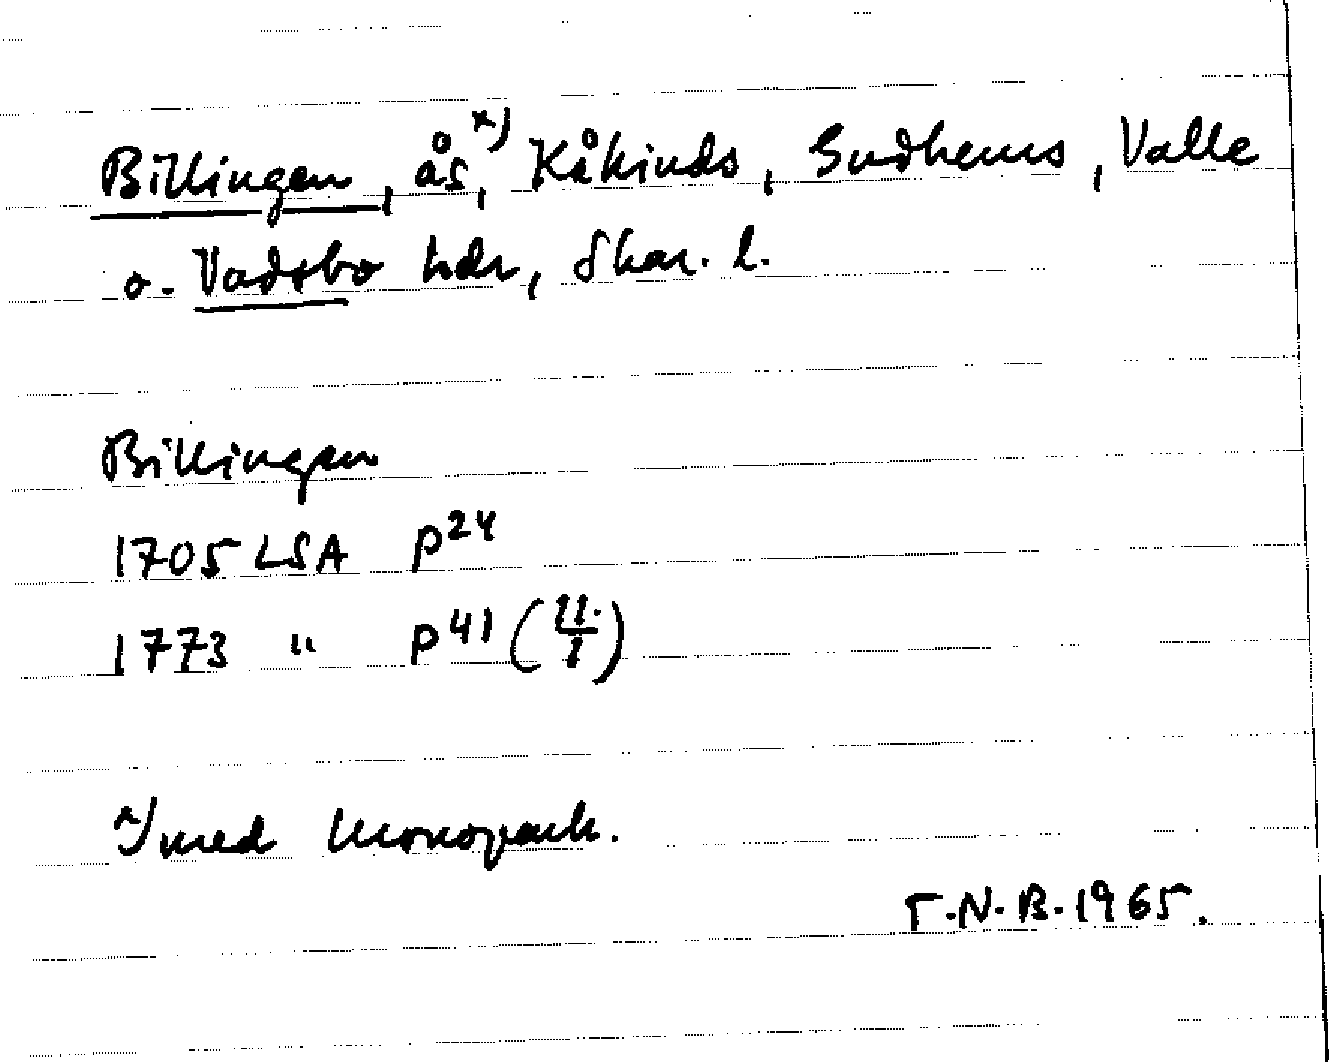 Billingen, ås x), Kåkinds, Gudhems, Valle
o. Vadsbo hdr, Skar. l.
Billingen
1705 LSA P24
1773 " P41 (11./1)
x) med kronopark.
T.N.B. 1965.